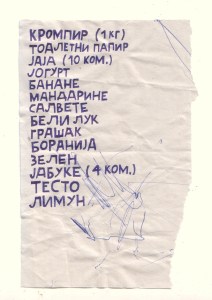 КРОМПИР (1 КГ)
ТОАЛЕТНИ ПАПИР
ЈАЈА (10 КОМ.)
ЈОГУРТ
БАНАНЕ
МАНДАРИНЕ
САЛВЕТЕ
БЕЛИ ЛУК
ГРАШАК
БОРАНИЈА
ЗЕЛЕН
ЈАБУКЕ (4 КОМ.)
ТЕСТО
ЛИМУН